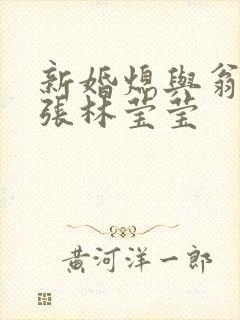 新婚熄與翁
張林莹莹
黄河洋一郎